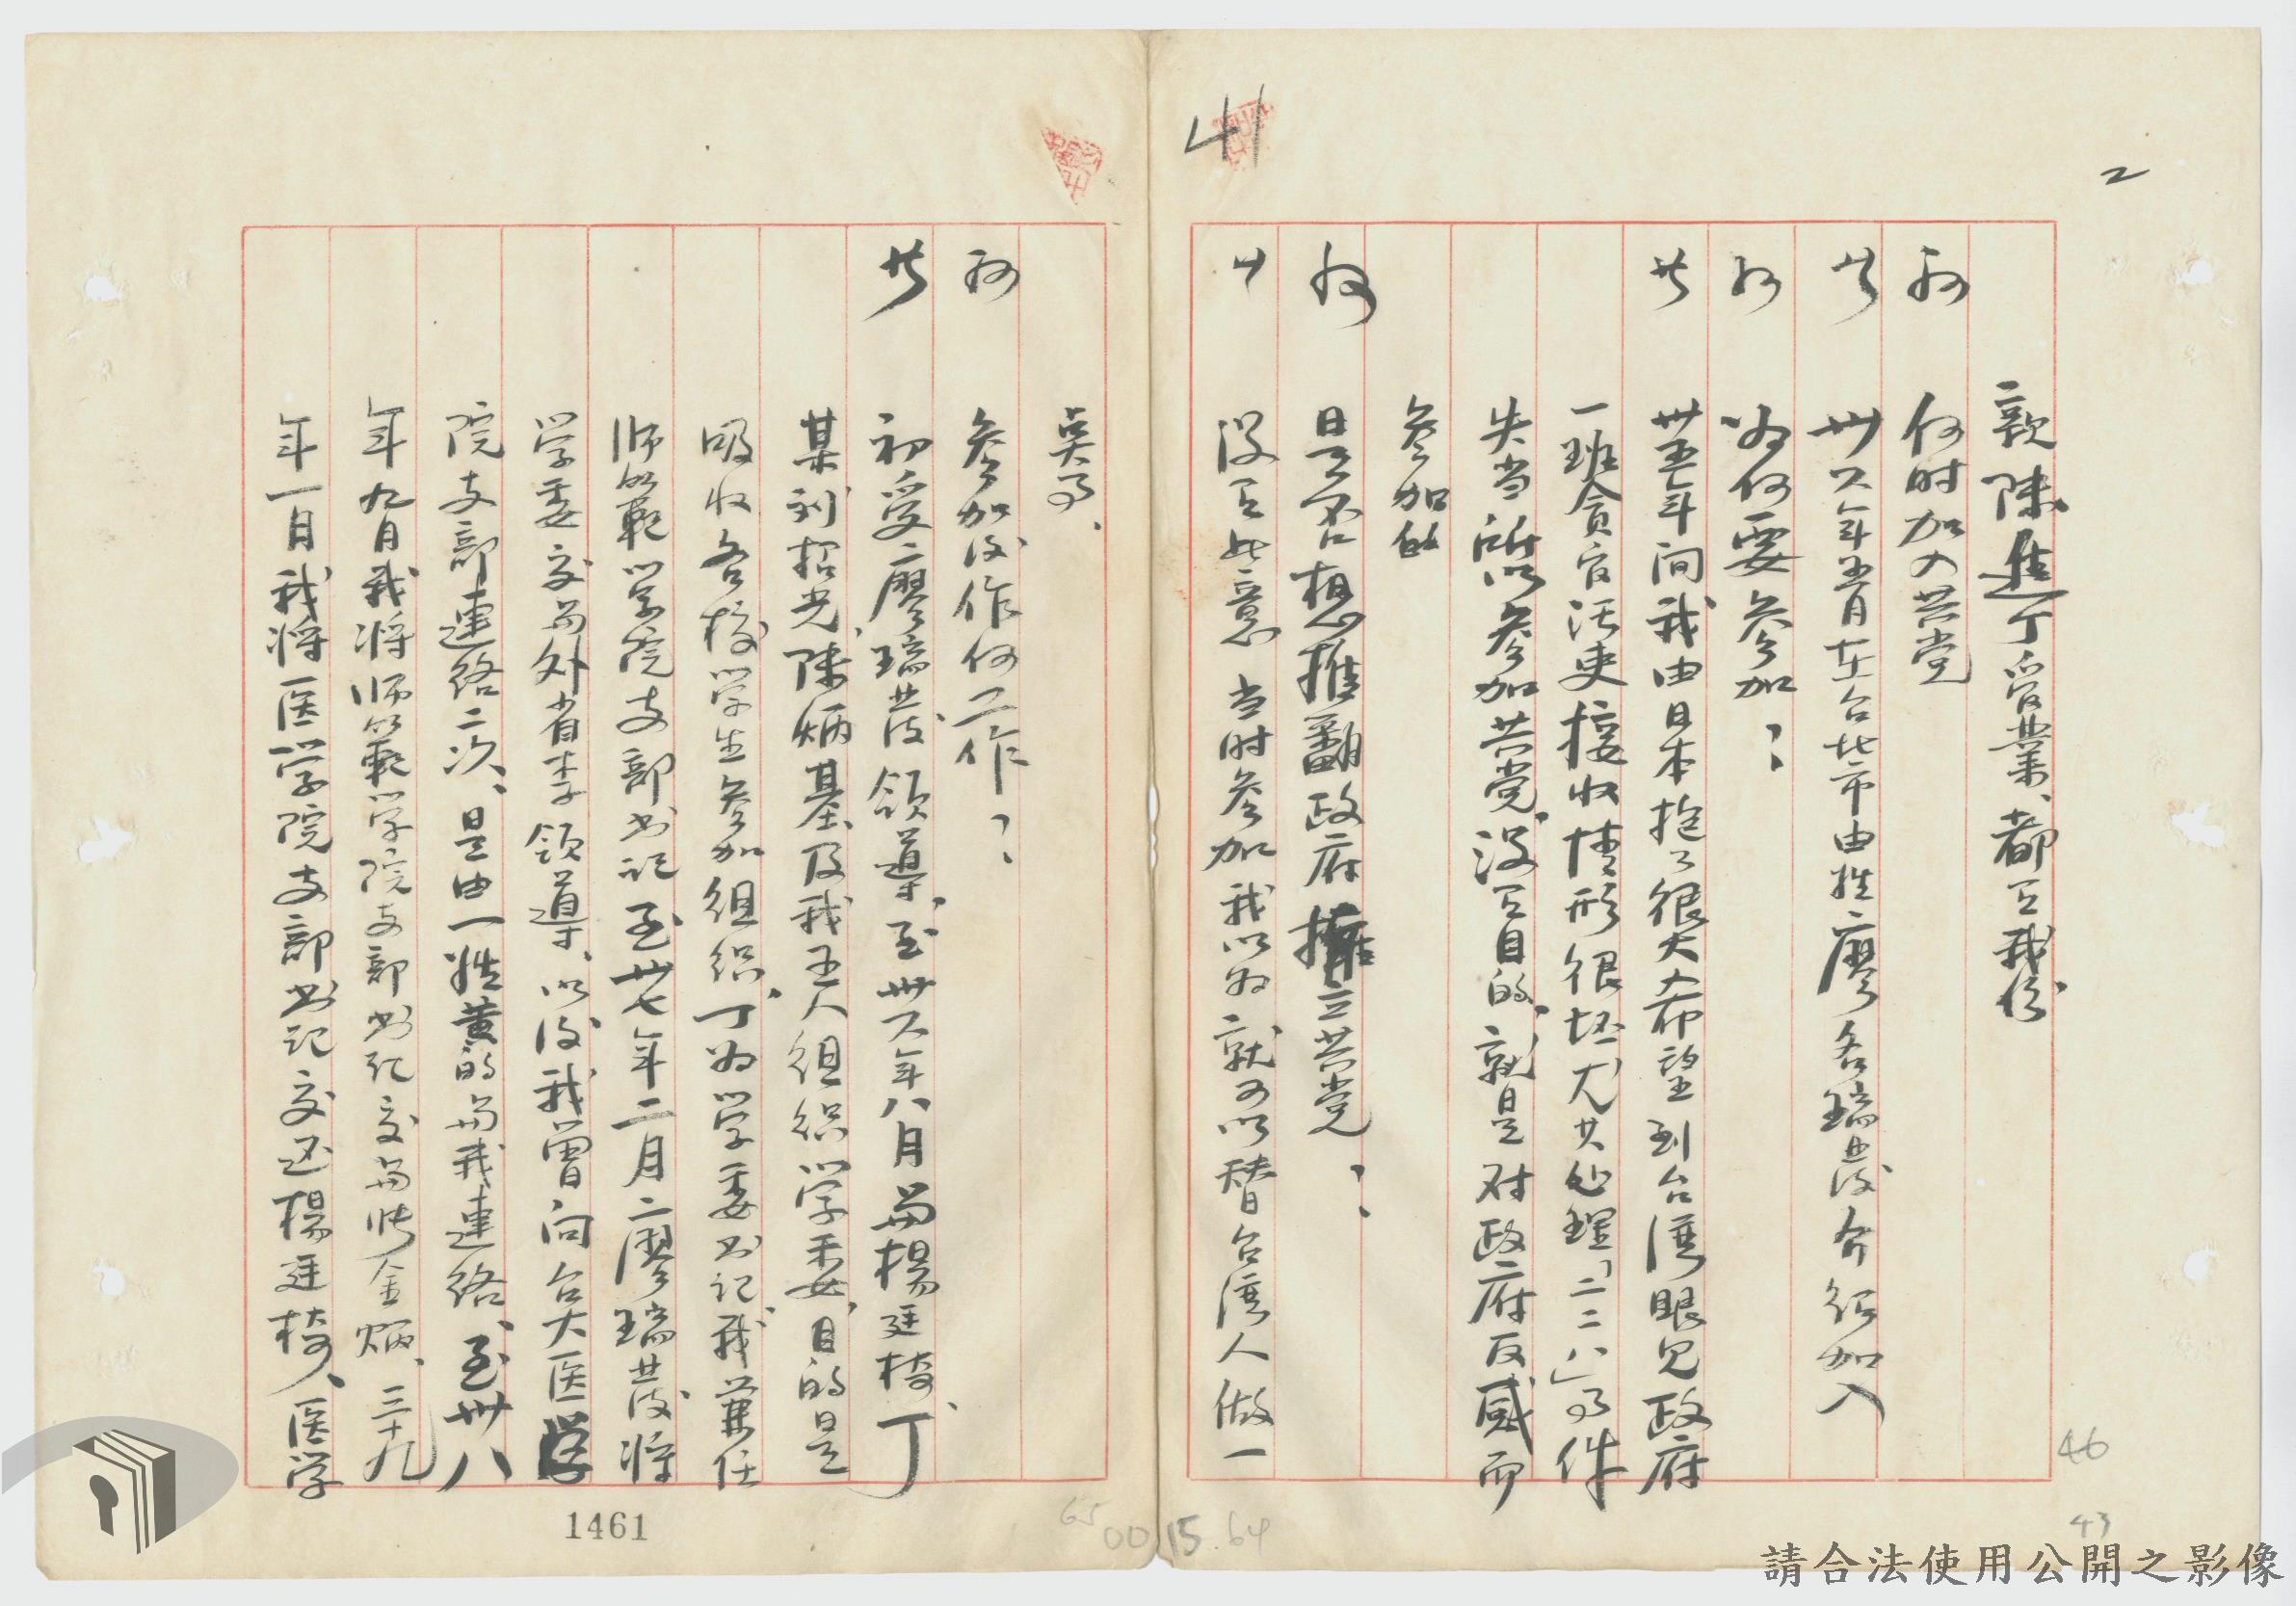 2
41
歎陳進丁窃業、都互我份
问 何时加入共党
供 卅六年五月在台北市由姓廖名瑞發介绍加入
问 为何要参加？
供 卅五年间我由日本抱了很大希望到台湾眼见政府
一班贪官污吏接收情形很坏尤其処理「二二八」事件
失当所以参加共党，没有目的，就是对政府反感而
参加的
问 是否想推翻政府擁立共党？
供 没有此意 当时参加我以为就可以替台湾人做一
点事、
问 参加後作何工作？
供 初受廖瑞發领導、至卅六年八月与楊廷椅、丁
某刘招光、陳炳基及我五人组织学委，目的是
吸收各校学生参加组织，丁为学委书记我兼任
师範学院支部书记至卅七年二月廖瑞發将
学委交与外省李领導、以後我曾向台大医学
院支部連络二次、是由一姓黄的与我連络、至卅八
年九月我将师範学院支部书记交与陈金炳、三十九
年一月我将医学院支部书记交还楊廷椅、医学
1461
65
00 15
64
46
43
請合法使用公開之影像